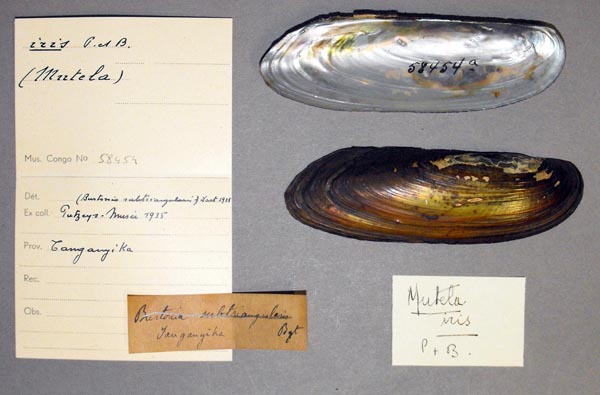 iris P. et B.
(Mutela)
Mus. Congo No 58454
Dét. (Burtonia subtriangularis) 1935
Ex coll. Putzeys - Musée 1935
Prov. Tanganyika
Rec.
Obs.
Burtonia subtriangularis
Tanganyika Bgt
58454a
Mutela
iris
P + B.